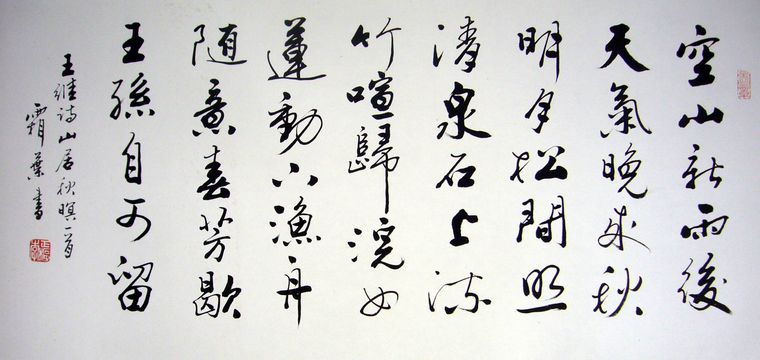 空山新雨後
天氣晚来秋
明月松間照
清泉石上流
竹喧歸浣女
蓮動下漁舟
随意春芳歇
王孫自可留
王維诗山居秋暝一首
霜葉書